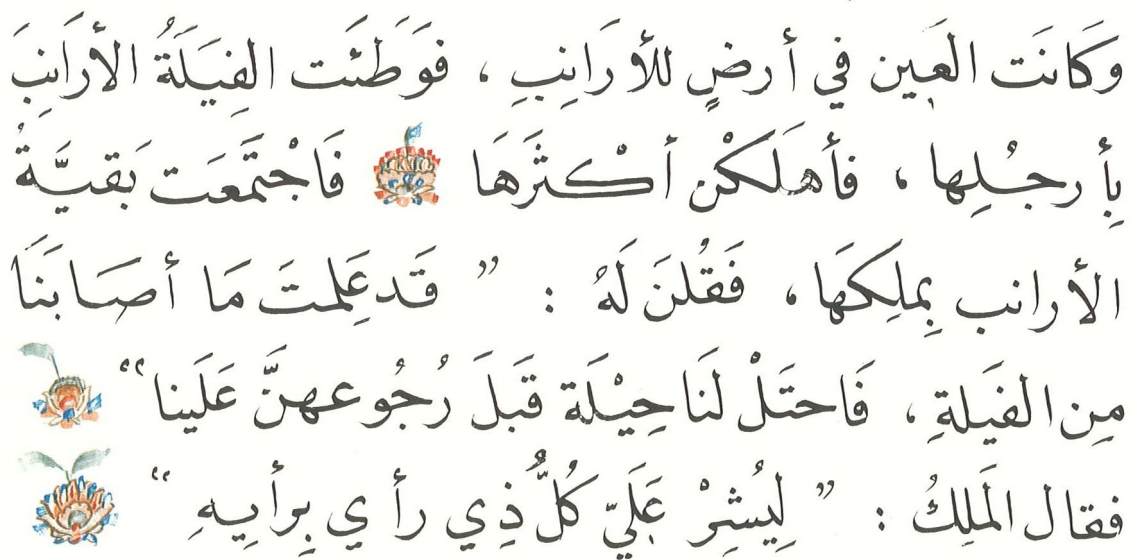 وَكَانَت العَين في أرضٍ للأرَانِبِ ، فَوَطَئَت الفِيَلَةُ الأرَانِبَ
بِأرجُلِها ، فأهلَكْن أكْثَرَهَا فَاجْتَمَعَت بَقيَّةُ
الأرانب بِملِكهَا ، فَقُلنَ لَهُ : ” قَد عَلِمتَ مَا أصَابَنَا
مِن الفَيَلةِ ، فَاحتَلْ لَنَا حِيْلَة قَبَلَ رُجُوعهنَّ عَلَينا “
فقال المَلِكُ : ” لِيُشِرْ عَلَيّ كُلُّ ذِي رأي بِرأيِهِ “